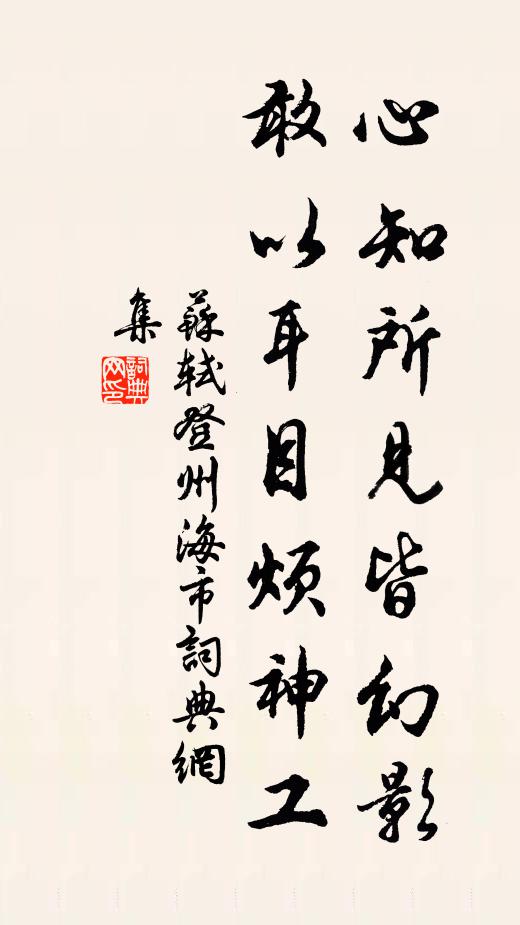 心知所見皆幻影
敢以耳目煩神工
蘇軾登州海市詞典網
集
詞典
网印